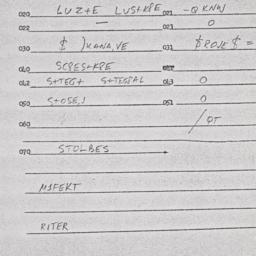 020 LUZ+E LUS+KPE 021 -Q KNW
022 — 023 0
030 $ 031 $ROJE $ =
040 SCPES+KPE
042 S+TEG+ S+TEGPAL 043 0
050 S+OSE,J 051 0
060 /QT
070 STOLBES
M1FEKT
RITER